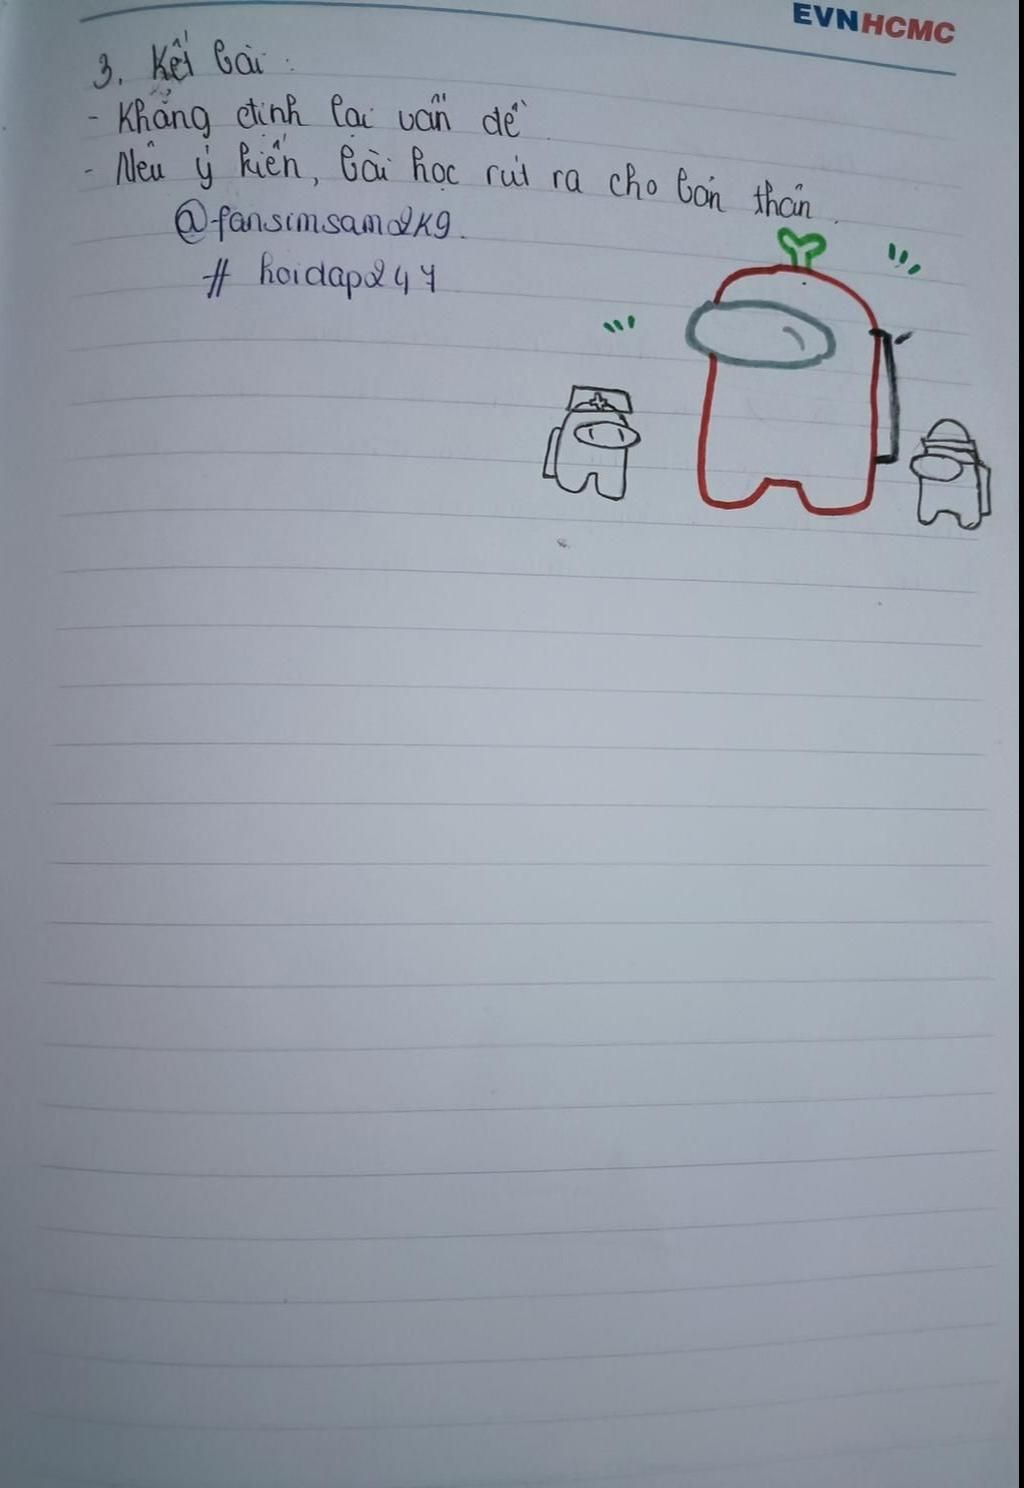 EVNHCMC
3. Kết bài :
- Khẳng định lại vấn đề
- Nêu ý kiến, bài học rút ra cho bản thân.
@fansimsama2k9.
# hoidap247